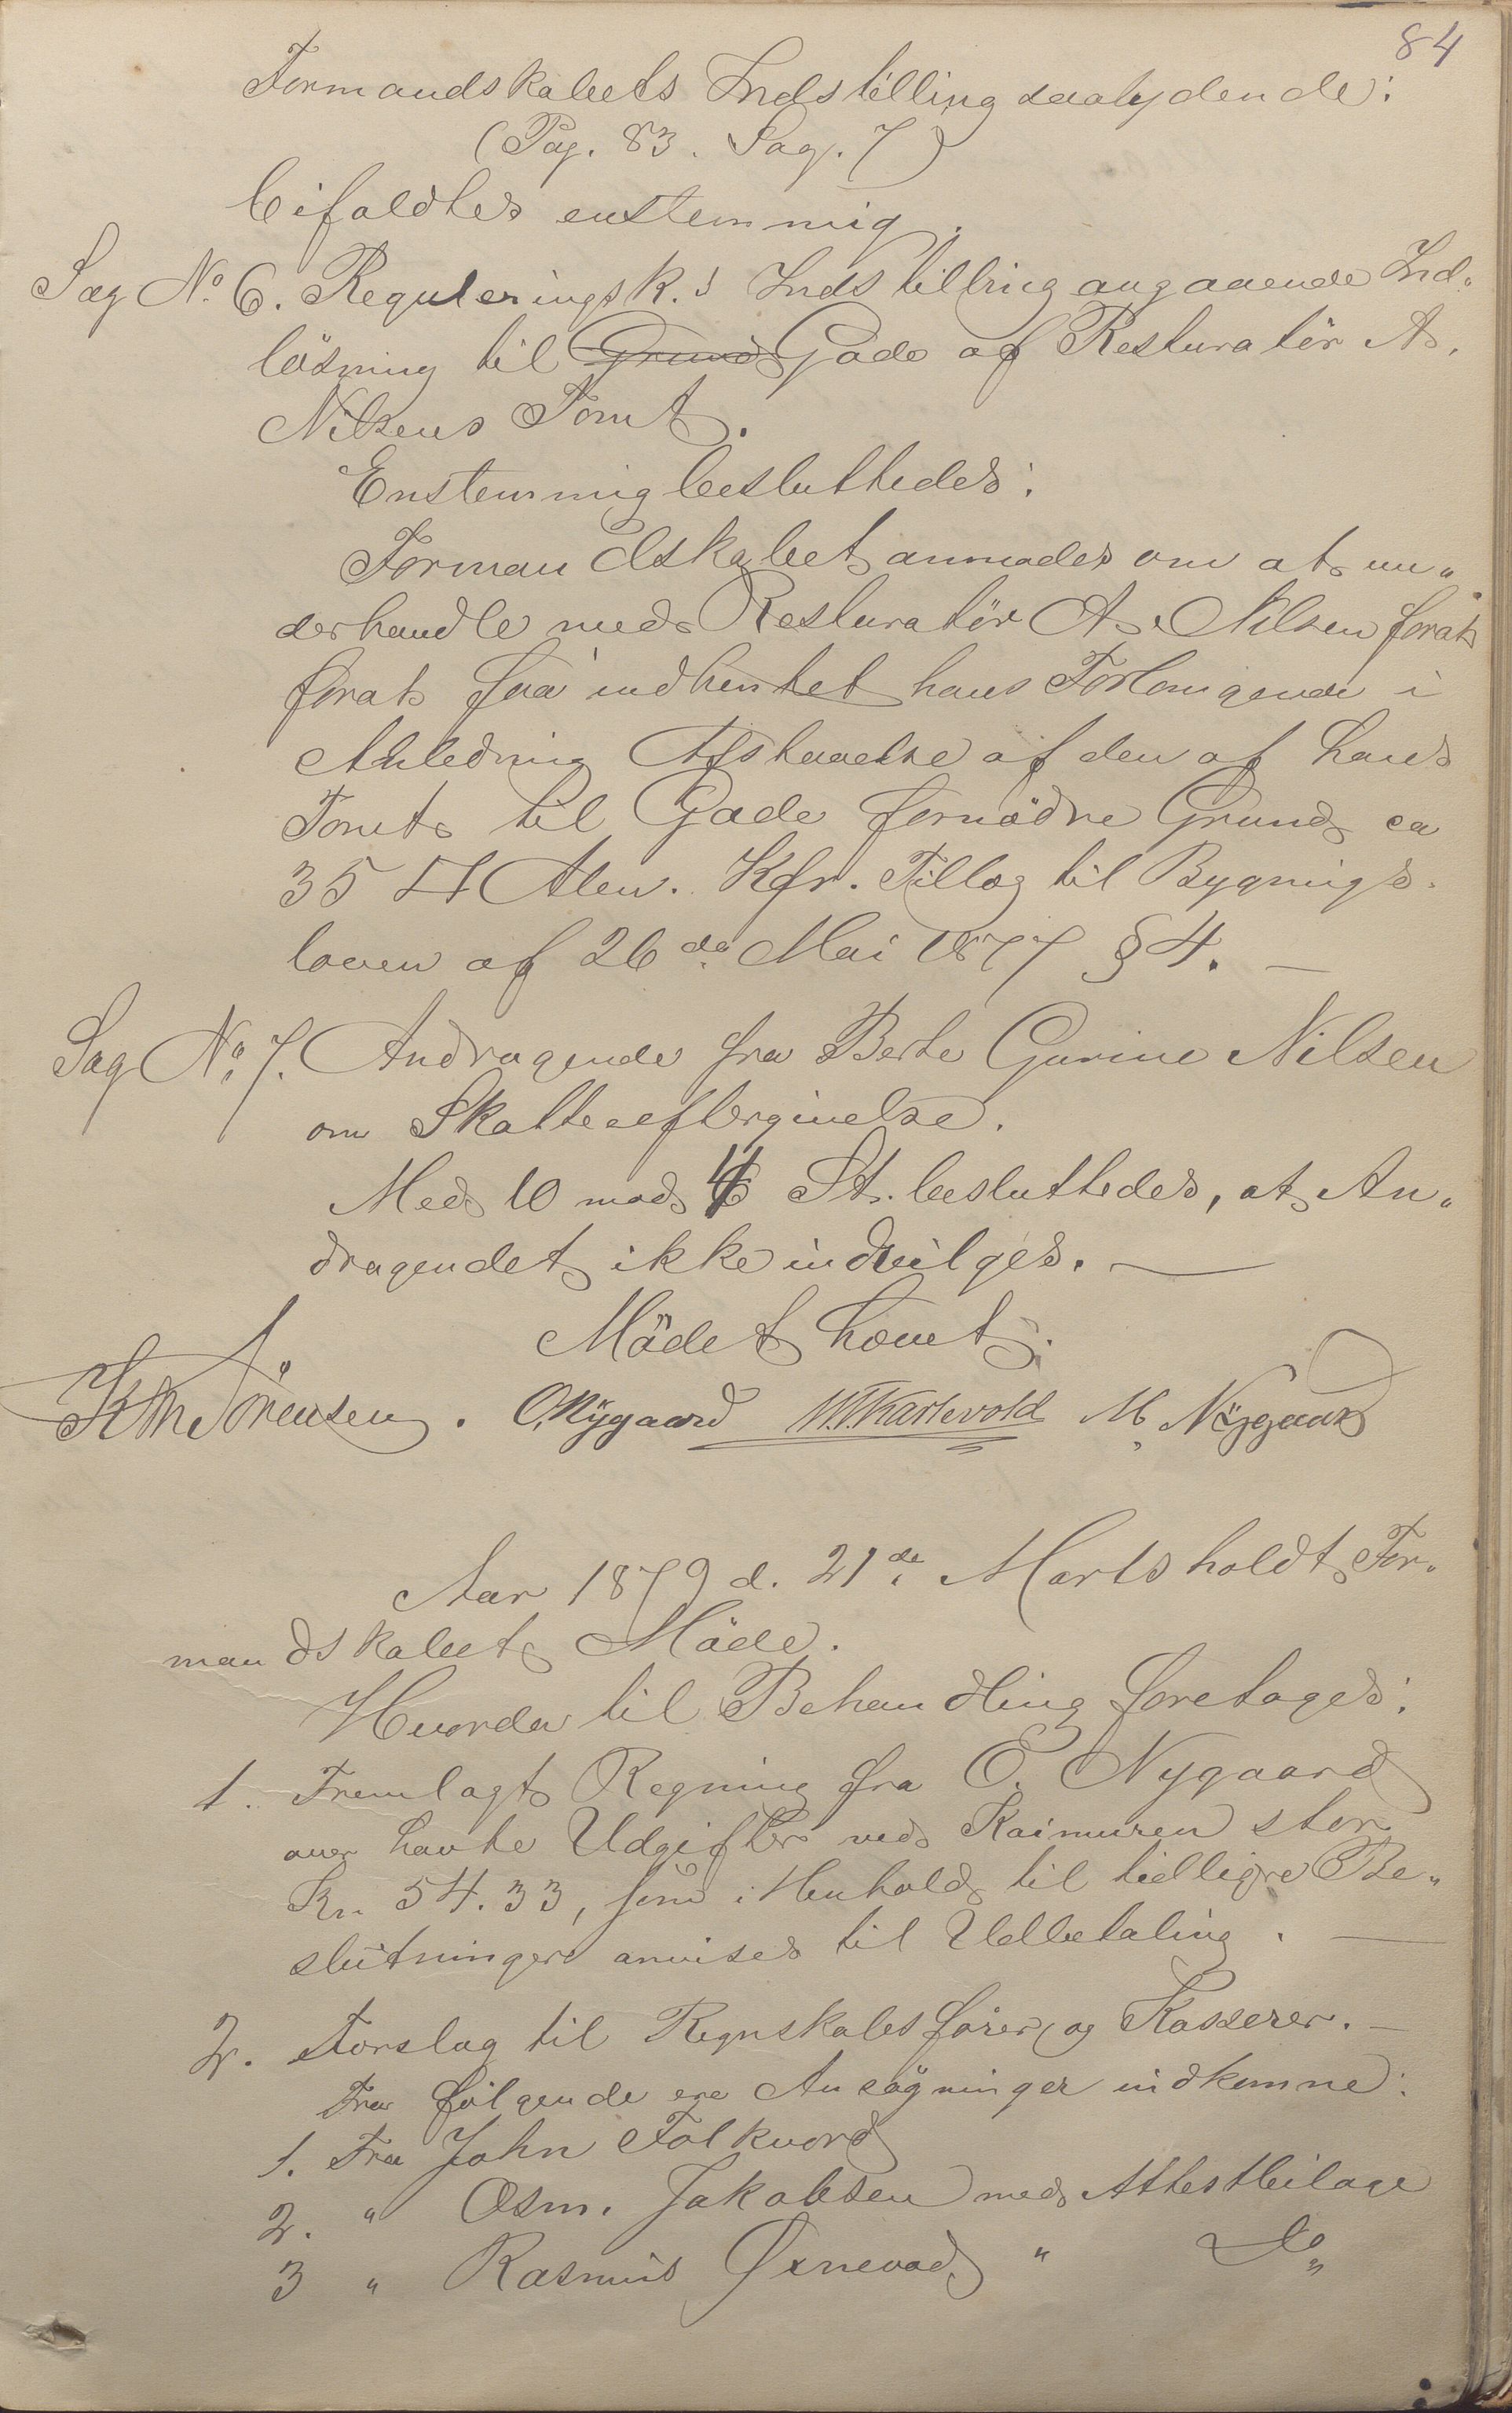 84
Formandskabets Indstilling saalydende:
(Pag. 83. Sag. 7)
bifaldtes enstemmig.
Sag No. 6. Reguleringsk.s Indstilling angaaende Ind-
løsning til Grund Gade af Resturatör A.
Nilsens Tomt.
Enstemmig besluttedes:
Formandskabet anmodes om at un-
derhandle med Resturatör A. Nilsen forat
forat faa indhentet hans Forlangende i
Anledning Afstaaelse af den af hans
Tomt til Gade fornödne Grund ca
35 □ Alen. Kfr. Tillæg til Bygnings-
loven af 26de Mai 1877 § 4. —
Sag No. 7. Andragende fra Berte Gurine Nilsen
om Skatteeftergivelse.
Med 10 mod 4 St. besluttedes, at An-
dragendet ikke indvilges. —
Mödet hævet.
Sörensen. O. Nygaard W. T. Kartevold M. Nygaard
Aar 1879 d. 21de Marts holdt For-
mandskabet Möde.
Hvorda til Behandling foretoges:
1. Fremlagt Regning fra E. Nygaard
over havte Udgifter ved Kaimuren stor
Kr. 54.33, som i Henhold til tidligere Be-
slutninger anvises til Udbetaling. —
2. Forslag til Regnskabsförer og Kasserer. —
Fra fölgende ere Ansögninger indkomne:
1. Fra John Folkvord
2. " Osm. Jakobsen med Attestbilage
3 " Rasmus Øxnevad " Do "